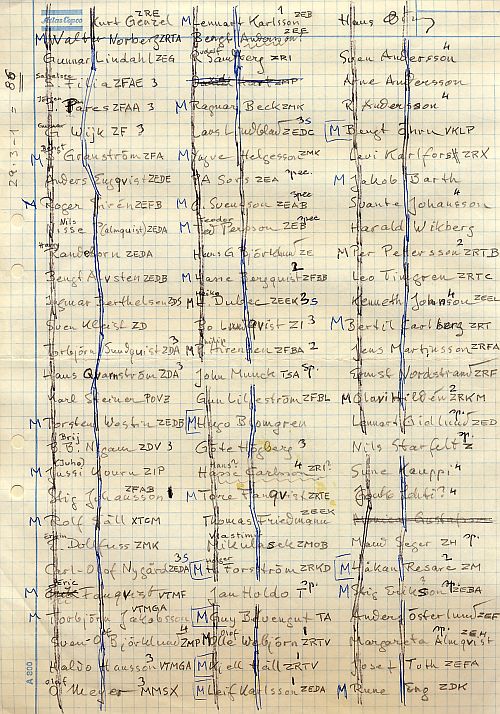 Atlas Copco
29.3-1 = 86
Kurt Genzel ZRE
M Walter Norberg ZRTA
Gunnar Lindahl ZEG
S. Filia ZFAE 3
J. Pares ZFAA 3
G Wijk ZF 3
Bengt
M B Granström ZFA
Anders Engqvist ZEDE
Roger Sirén ZEFB
Nils
Nisse (Almquist) ZEDA
Harry
Randeborn ZEDA
Bengt Avsten ZEDB
Ingmar Berthelsen ZDS
Sven Kleist ZD
Torbjörn Sundqvist ZDA 3
Hans Qvarnström ZDA 3
Karl Steiner POVZ
M Torsten Westin ZEDB
Brij
B.B. Nigam ZDV 3
(Juho)
M Jussi Kouru ZIP
Stig Johansson ZFAB
M Rolf Säll XTGM
Erwin
E. Dollfuss ZMK
Carl-Olof Nygård ZEDA 3S
Eric
M Fangvist VTMF
M Torbjörn Jakobsson VTMGA
Sven-O Björklund ZMP 4
Haldo Hansson VTMGA 3
Olof
O Meyer MMSX 3
M Lennart Karlsson ZEB 1
Bengt Andersson ZEE
Rudolf
R Samberg ZRI
M Ragnar Beck ZMK
Lars Lindblad ZEDC 3S
M Yngve Helgesson ZMK
PA Sors ZEA spec.
M G Svensson ZEAB spec
Teodor
M Ted Persson ZEB spec
Hans G Björklund ZE
M Harre Bergquist ZFBB 2
Heino
M H. Dubec ZEEK 3S
Bo Lundqvist ZI 3
Philip
P Hirensen ZFBA 2
John Munck TSA sp.
Gun Liljeström ZFBL
M Hugo Blomgren
Göte Högberg 3
Hans? Hasse Carlsson 4 ZRI?
M Tore Fangvist ZRTE
Thomas Friedmann ZEEK
Vlastimir
Mikulasek ZMOB
Holger
M H Forström ZRKD
Jan Holdo T sp.
M Guy Bovengut TA
Olof
M Olle Webjörn ZRTV
M Kjell Täll ZRTV
M Leif Karlsson ZEDA
Hans Öhrn
Sven Andersson 4
Arne Andersson
R Andersson 4
M Bengt Öhrn VKLP
Levi Karlforst ZRX 4
M Jakob Barth
Svante Johansson 4
Harald Wikberg
M Per Petersson ZRTB 2
Leo Tingren ZRTC
Kenneth Johnson ZEEL 4
M Bertil Carlberg ZRT
Jens Martinsson ZRFA
Ernst Nordstrand ZRF
M Olavi Hildén ZRKM 2
Lennart Gidlund ZED
Nils Starfelt Z sp.
Sune Kauppi 4
Maud Seger ZH sp.
M Håkan Resare ZM 2
M Stig Erikson ZEBA sp.
Anders Österlund ZEF 3
Margareta Almqvist ZEH sp.
Josef Toth ZEFA
M Rune Eng ZDK
A 800